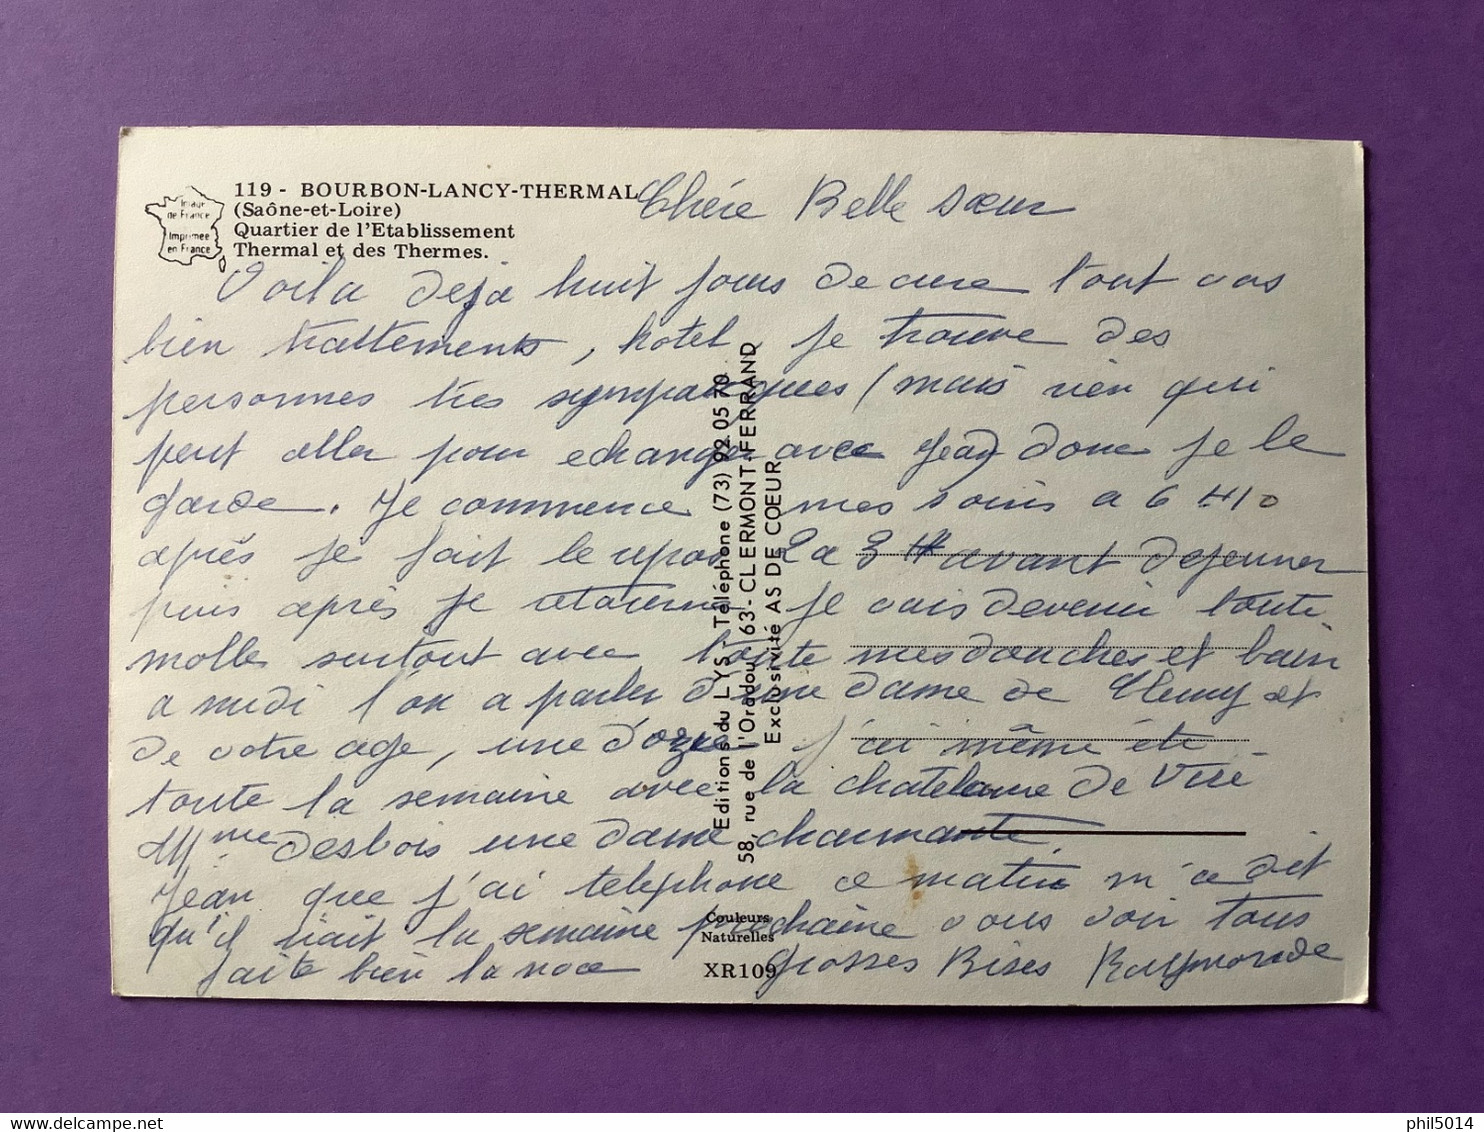 119 - BOURBON-LANCY-THERMAL
(Saône-et-Loire)
Quartier de l'Etablissement
Thermal et des Thermes.
Image
de France
Imprimée
en France
Chére Belle sœur
Voila deja huit jours de cure tout vas
bien traitements, hotel, je trouve des
personnes tres sympatiques (mais rien qui
peut aller pour echanger avec Jean) donc je le
garde. Je commence mes soins a 6 H10
après je fait le repos 2 a 3 H avant dejeuner
puis après je retourne je vais devenir toute
molle surtout avec toute mes douches et bain
a midi l'on a parler d'une dame de et
de votre age, une d'ozee j'ai même été
toute la semaine avec la chatelaine de Viré
Mme Desbois une dame charmante.
Jean que j'ai telephone ce matin m'a dit
qu'il irait la semaine prochaine vous voir tous
faite bien la noce grosses Bises Raymonde
Editions du LYS Téléphone (73) 92 05 70
58, rue de l'Oradou, 63 - CLERMONT-FERRAND
Exclusivité AS DE COEUR
Couleurs
Naturelles
XR109
delcampe.net
phil5014